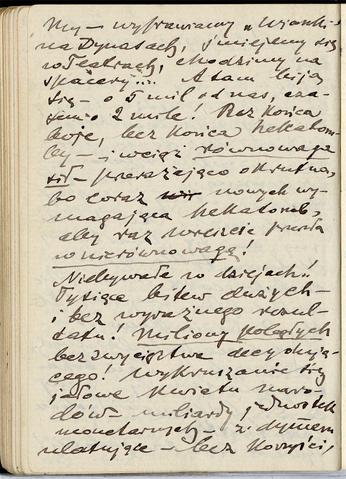 My – wyprawiamy „Wianki"
na Dynasach, śmiejemy się
w teatrach, chodzimy na
spacery... A tam biją
się – o 5 mil od nas, cza-
sem o 2 mile! Bez końca
boje, bez końca hekatom-
by – i wciąż równowaga
sił – przerażająco okrutna,
bo coraz nowych wy-
magająca hekatomb,
aby raz wreszcie przeszła
w nierównowagę!
Niebywałe w dziejach!!
Tysiące bitew dużych –
i bez wyraźnego rezul-
tatu! Miliony poległych
bez zwycięstwa decydują-
cego! Wykruszanie się
jałowe kwiatu naro-
dów – miliardy jednostek
monetarnych – z dymem
ulatujące – bez korzyści,